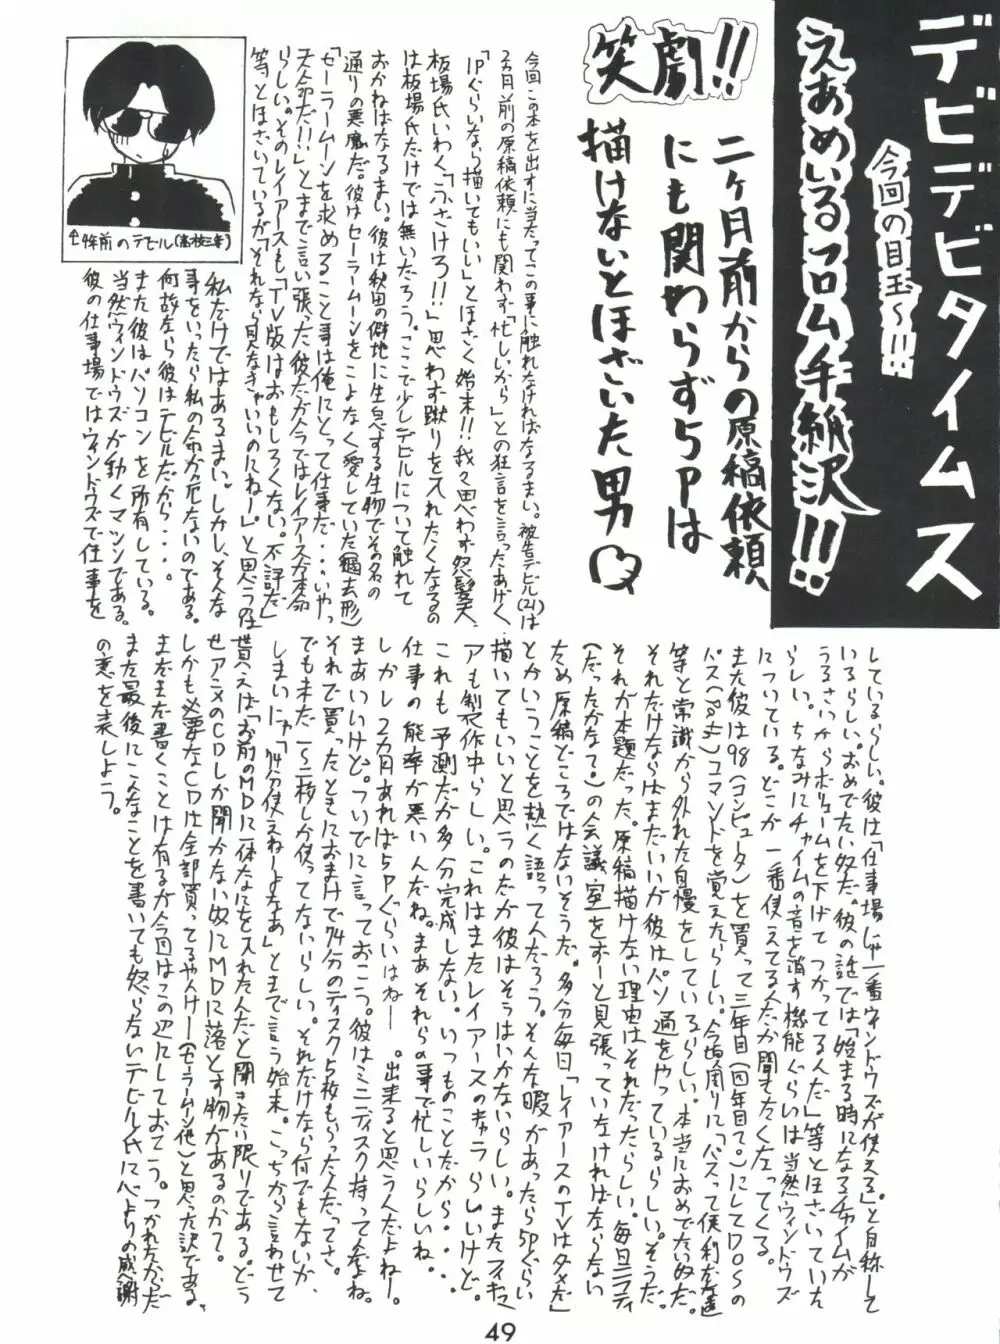 デビデビタイムス
今回の目玉～!!!
えあめいるフロム千紙沢!!!
笑劇!!
二ケ月前からの原稿依頼
にも関わらず5Pは
描けないとほざいた男
今回この本を出すに当たってこの事に触れなければなるまい。被告デビル(21)は
2ヵ月前の原稿依頼にも関わず「忙しいから」との狂言を言ったあげく
「1Pぐらいなら描いてもいい」とほざく始末!!我々思わず怒髪天
板場氏いわく「ふざけろ!!」思わず蹴りを入れたくなるの
は板場氏だけでは無いだろう。ここで少しデビルについて触れて
おかねばなるまい。彼は秋田の僻地に生息する生物でその名の
通りの悪魔だ。彼はセーラームーンをこよなく愛していた(過去形)
「セーラームーンを求めること事は俺にとって仕事だ・・・いやっ
天命だ!!」とまで言い張った彼だが今ではレイアースが本命
らしい。そのレイアースも「TV版はおもしろくない。不評だ」
等とほざいているが「それなら見なきゃいいのにねー」と思うのは
私だけではあるまい。しかし、そんな
事をいったら私の命が危ないのである。
何故なら彼はデビルだから・・・。
また彼はパソコンを所有している。
当然ウィンドウズが動くマシンである。
彼の仕事場ではウィンドウズで仕事を
↑4年前のデビル(高校三年)
しているらしい。彼は「仕事場じゃ一番ウィンドウズが使える」と自称して
いるらしい。おめでたい奴だ。彼の話では「始まる時になるチャイムが
うるさいからボリュームを下げてつかってるんだ」等とほざいていた
らしい。ちなみにチャイムの音を消す機能ぐらいは当然ウィンドウズ
についている。どこが一番使えてる人だか聞きたくなってくる。
また彼は98(コンピュータ)を買って三年目(四年目?)にしてDOSの
パス(Path)コマンドを覚えたらしい。今頃周りに「パスって便利だな」
等と常識から外れた自慢をしているらしい。本当におめでたい奴だ。
それだけならばまだいいが彼はパソ通をやっているらしい。そうだ。
それが本題だった。原稿描けない理由はそれだったらしい。毎日ニフティ
(だったかな?)の会議室をずーと見張っていなければならない
ため原稿どころではないそうだ。多分毎日「レイアースのTVはダメだ」
とかいうことを熱く語ってんだろう。そんな暇があったら5Pぐらい
描いてもいいと思うのだが彼はそうはいかないらしい。またフィギュ
アも製作中らしい。これはまたレイアースのキャラらしいけど。
これも予測だが多分完成しない。いつものことだから・・・
仕事の能率が悪いんだね。まあそれらの事で忙しいらしいね。
しかし2カ月あれば5Pぐらいはねー。出来ると思うんだよねー。
まあいいけど。ついでに言っておこう。彼はミニディスク持ってんだよね。
それで買ったときにおまけで74分のディスク5枚もらったんだってさ。
でも未だ1～2枚しか使ってないらしい。それだけなら何でもないが、
しまいにゃ「74分使えねーよなあ」とまで言う始末。こっちから言わせて
貰えば「お前のMDに一体なにを入れたんだと聞きたい限りである。どう
せアニメのCDしか聞かない奴にMDに落とす物があるのか?
しかも必要なCDは全部買ってるやんけー(セーラームーン他)と思った訳である。
まだまだ書くことは有るが今回はこの辺にしておこう。つかれたからだ
また最後にこんなことを書いても怒らないデビル氏に心より感謝
の意を表しよう。
49